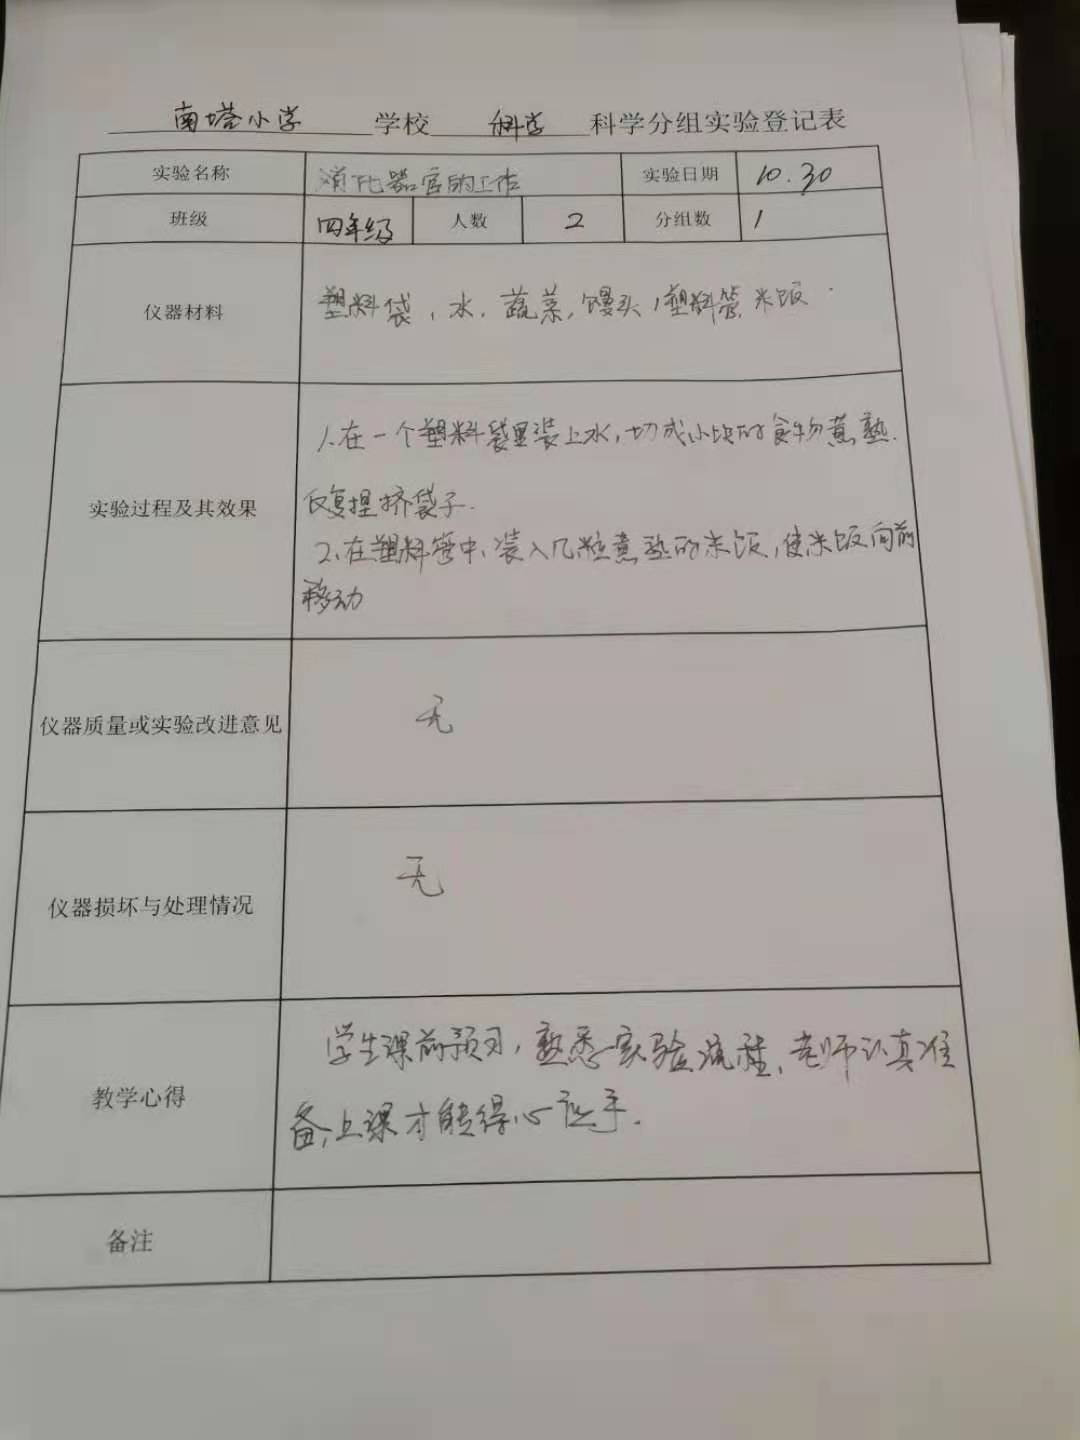 南塔小学 学校 科学 科学分组实验登记表
实验名称 消化器官的工作 实验日期 10.30
班级 四年级 人数 2 分组数 1
仪器材料 塑料袋，水，蔬菜，馒头，塑料管米饭.
实验过程及其效果
1.在一个塑料袋里装上水，切成小块的食物煮熟.
反复捏挤袋子.
2.在塑料管中，装入几粒煮熟的米饭，使米饭向前
移动
仪器质量或实验改进意见 无
仪器损坏与处理情况 无
教学心得
学生课前预习，熟悉实验流程，老师认真准
备，上课才能得心应手.
备注